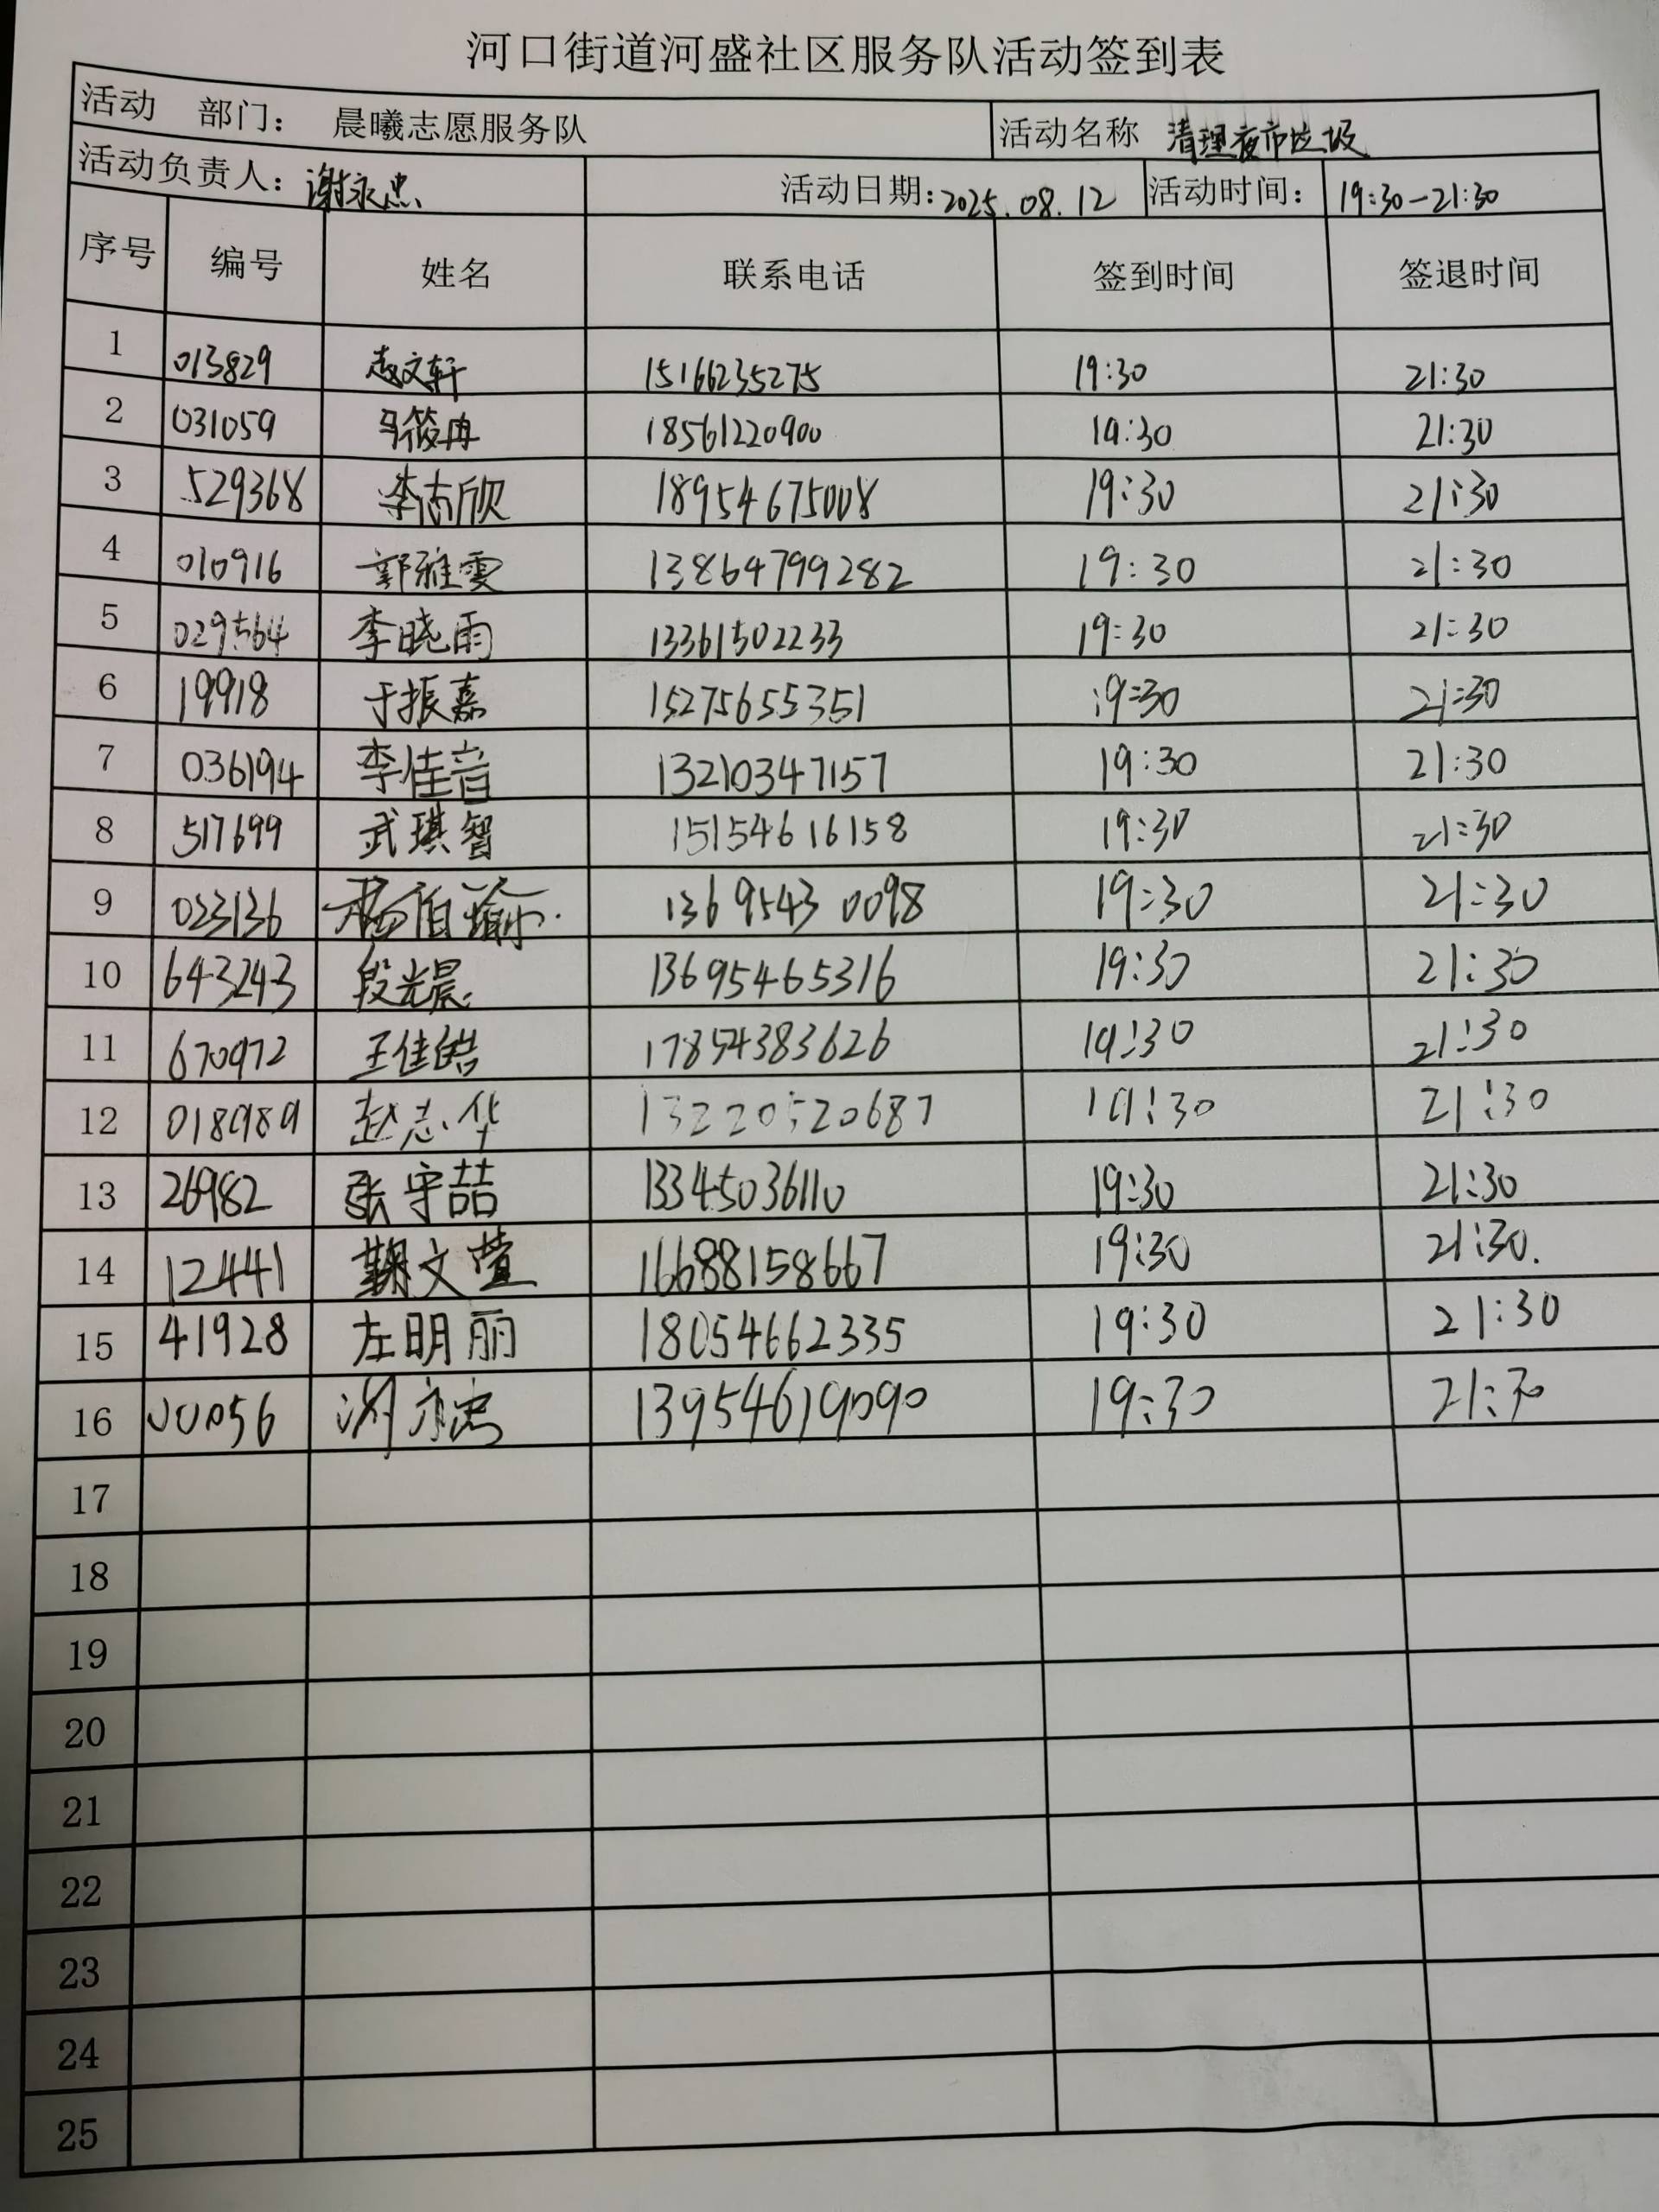 河口街道河盛社区服务队活动签到表
活动 部门： 晨曦志愿服务队 活动名称 清理夜市垃圾
活动负责人：谢永忠 活动日期：2025.08.12 活动时间： 19:30-21:30
序号 编号 姓名 联系电话 签到时间 签退时间
1 013829 袁文轩 15166235275 19:30 21:30
2 031059 马筱冉 18561220900 19:30 21:30
3 529368 李志欣 18954675008 19:30 21:30
4 010916 郭雅雯 13864799282 19:30 21:30
5 029564 李晓雨 13361502233 19:30 21:30
6 19918 于振嘉 15275655351 19:30 21:30
7 036194 李佳音 13210347157 19:30 21:30
8 517699 武琪智 15154616158 19:30 21:30
9 023136 杨佰瑜 13695430098 19:30 21:30
10 643243 段光晨 13695465316 19:30 21:30
11 670972 王佳皓 17854383626 19:30 21:30
12 018989 赵志华 13220520687 19:30 21:30
13 26982 张宇喆 13345036110 19:30 21:30
14 12441 鞠文萱 16688158667 19:30 21:30.
15 41928 左明丽 18054662335 19:30 21:30
16 00056 谢永忠 13954619090 19:30 21:30
17
18
19
20
21
22
23
24
25